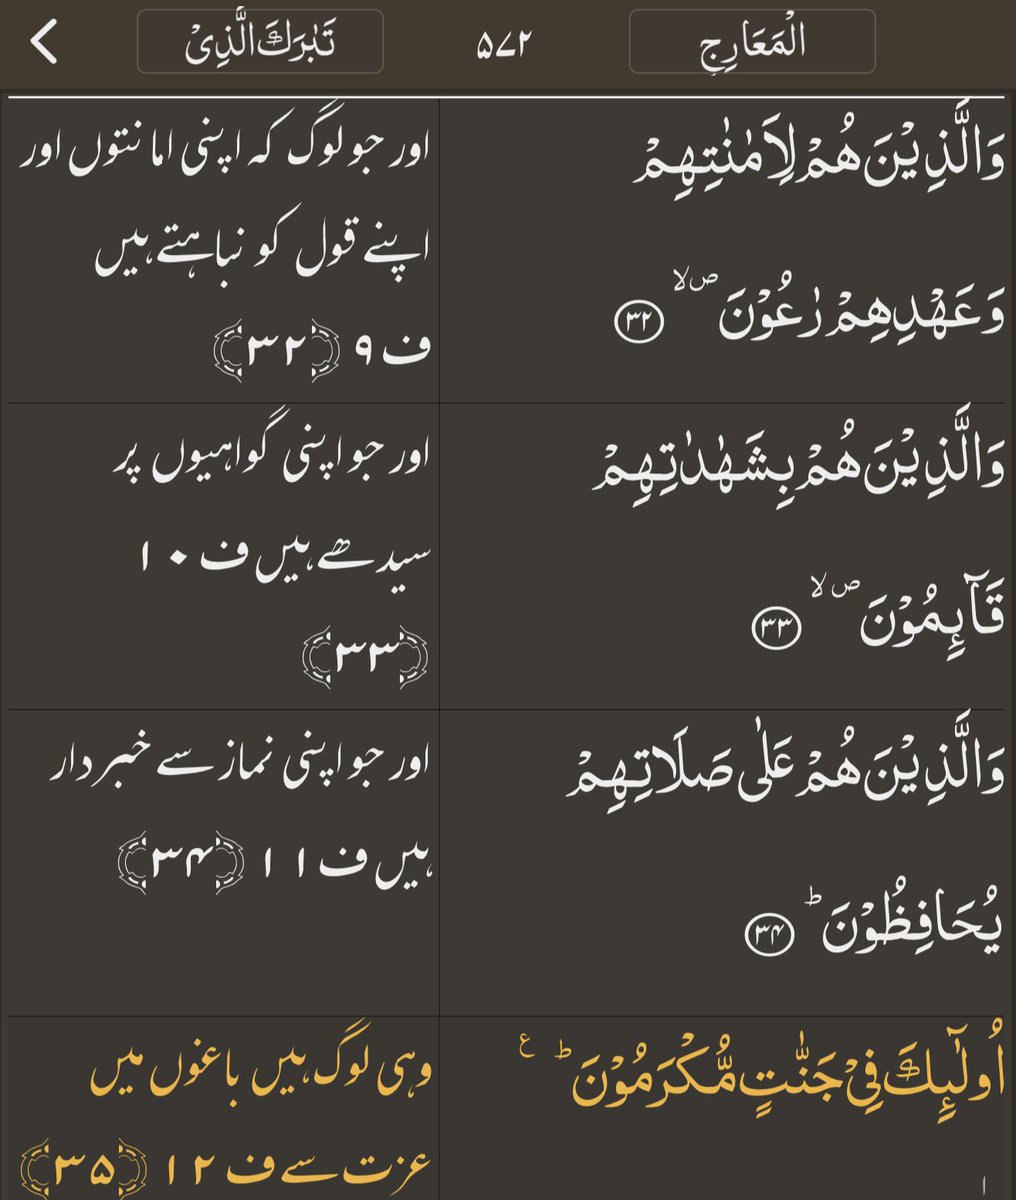 الْمَعَارِجِ
۵۷۲
تَبٰرَكَ الَّذِیْ
وَالَّذِیْنَ هُمْ لِاَمٰنٰتِهِمْ
وَعَهْدِهِمْ رٰعُوْنَ ۪ۙ ۳۲
اور جو لوگ کہ اپنی امانتوں اور
اپنے قول کو نباہتے ہیں
ف ۹ ﴿۳۲﴾
وَالَّذِیْنَ هُمْ بِشَهٰدٰتِهِمْ
قَآىِٕمُوْنَ ۪ۙ ۳۳
اور جو اپنی گواہیوں پر
سیدھے ہیں ف ۱۰
﴿۳۳﴾
وَالَّذِیْنَ هُمْ عَلٰی صَلَاتِهِمْ
یُحَافِظُوْنَ ؕ ۳۴
اور جو اپنی نماز سے خبردار
ہیں ف ۱۱ ﴿۳۴﴾
اُولٰٓىِٕكَ فِیْ جَنّٰتٍ مُّكْرَمُوْنَ ؕ ع
وہی لوگ ہیں باغوں میں
عزت سے ف ۱۲ ﴿۳۵﴾